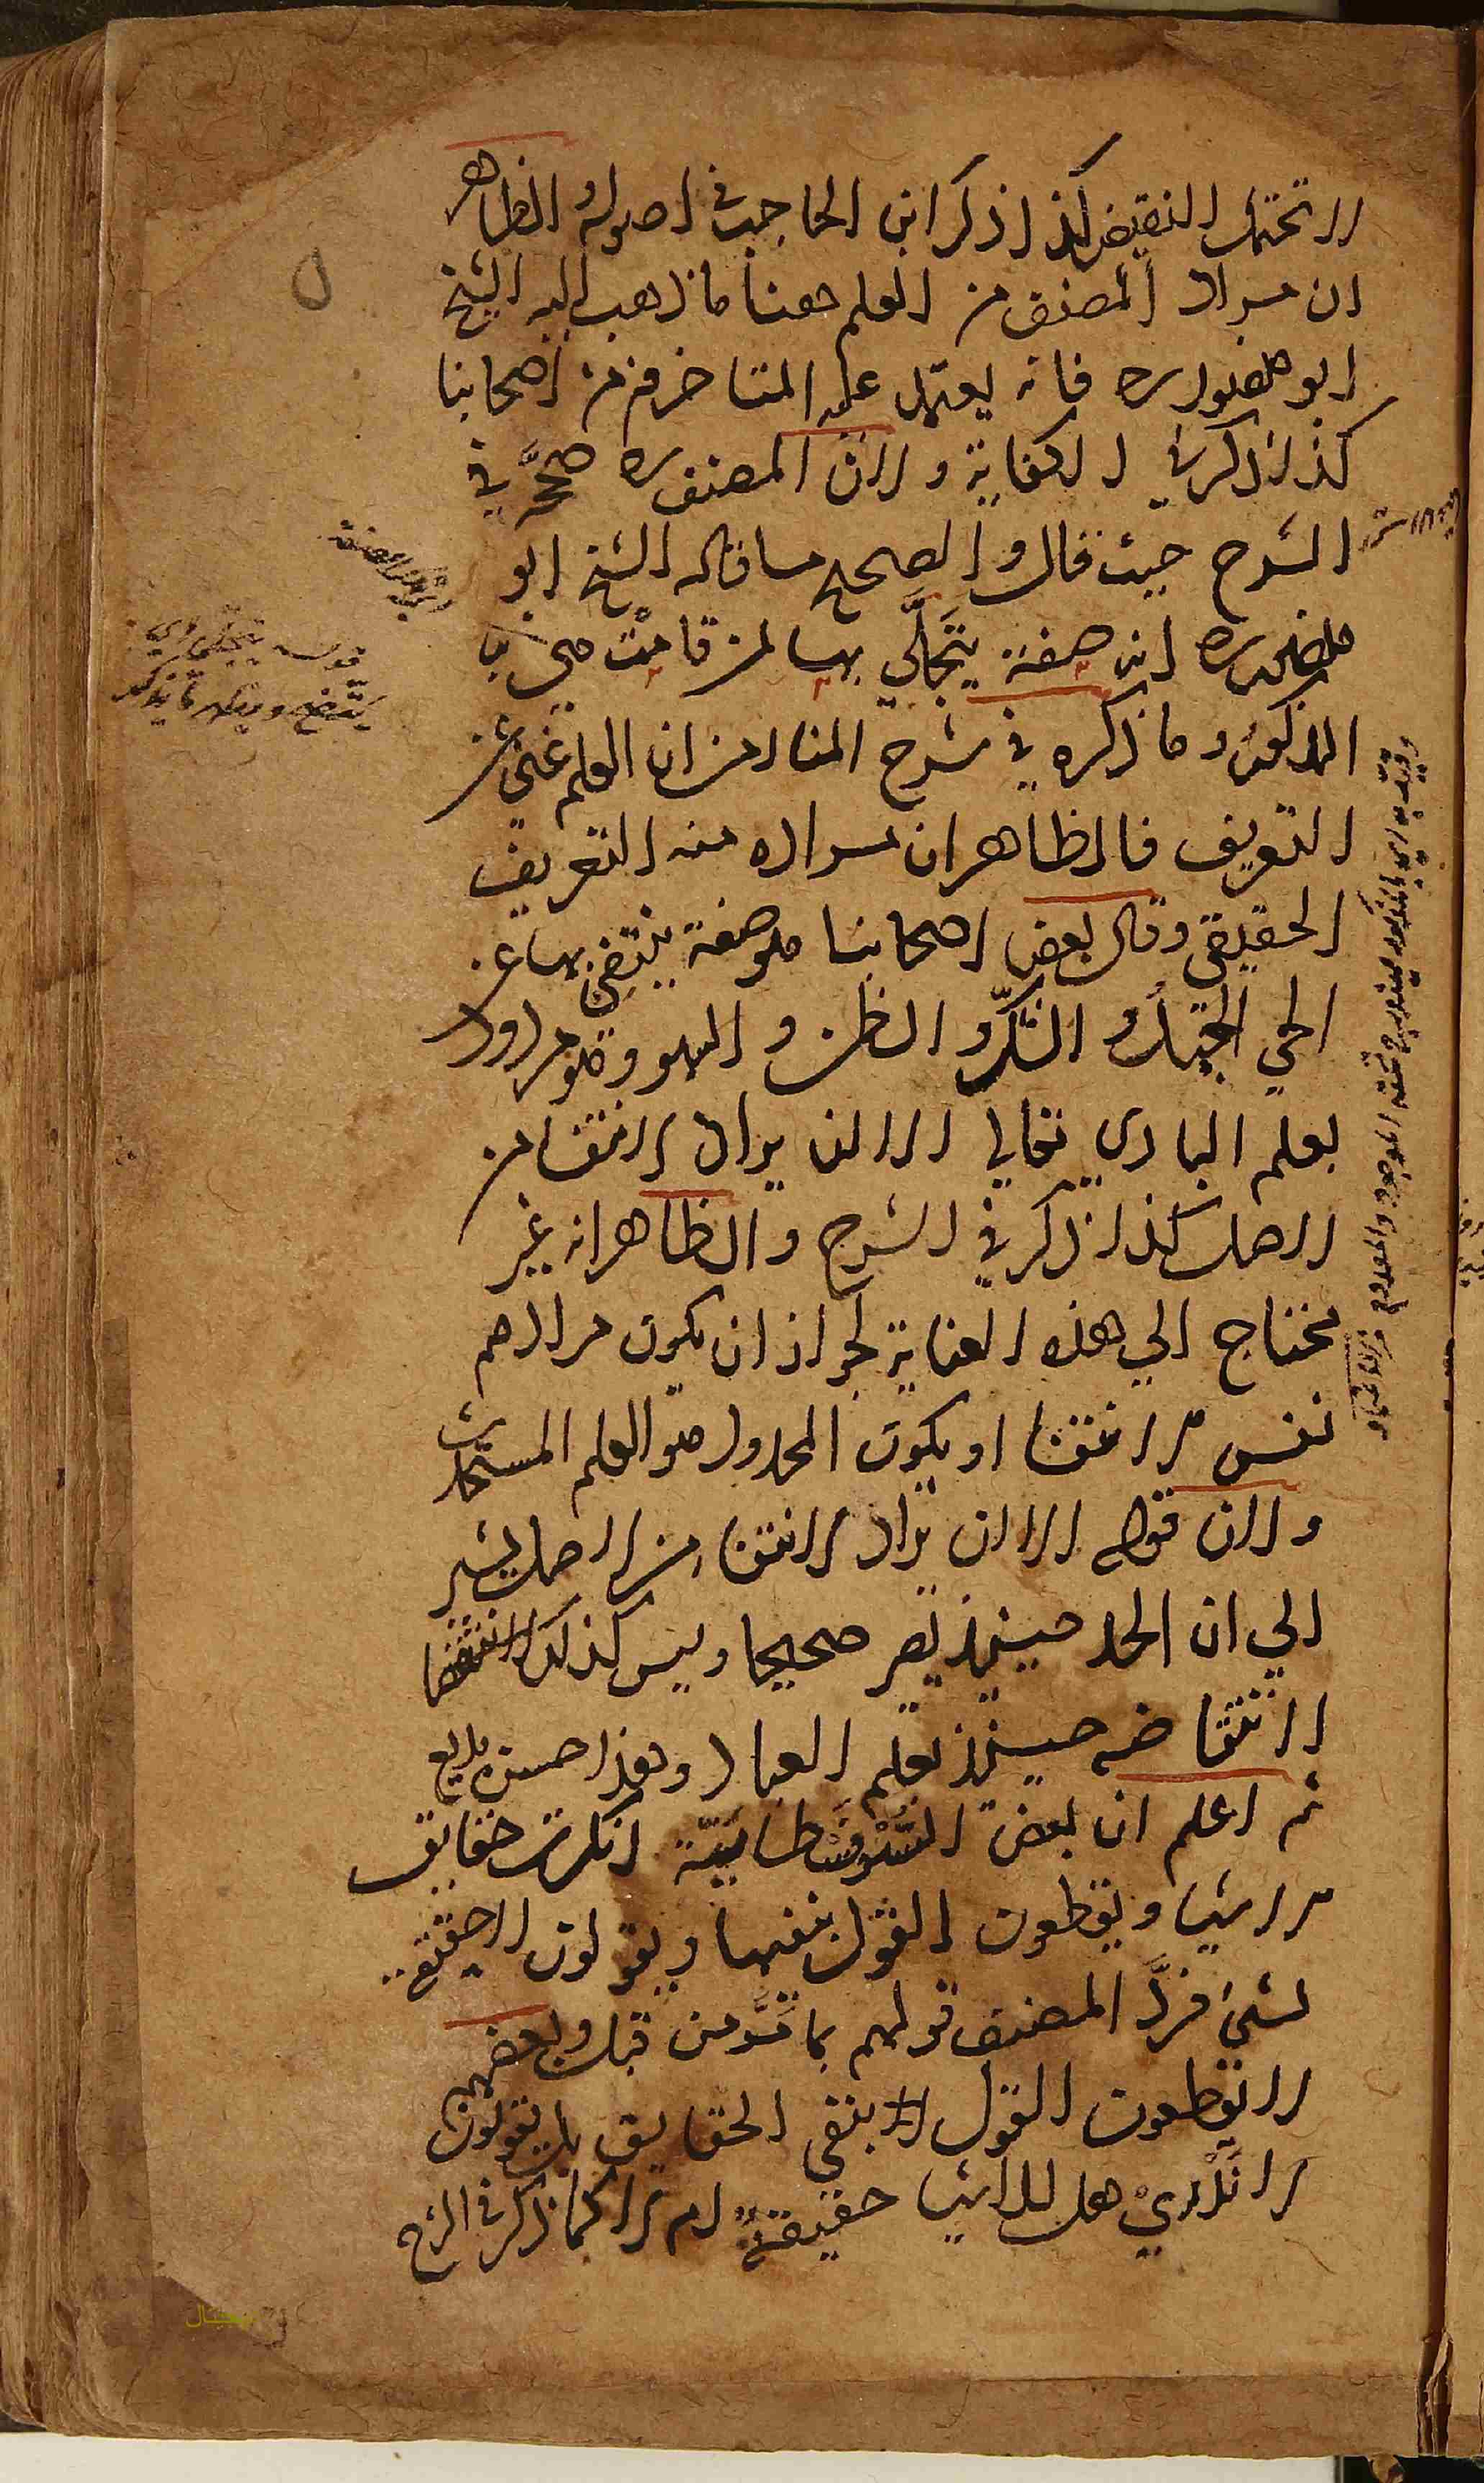 لا تحتمل النقيض كذا ذكر ابن الحاجب في اصوله والظاهر
ان مراد المصنف من العلم ههنا ما ذهب اليه الشيخ
ابو منصور ره فانه يعتمد عليه المتاخرون من اصحابنا
كذا ذكر في الكفاية ولان المصنف ره صححه في
الشرح حيث قال والصحيح ما قاله الشيخ ابو
منصور ره انه صفة يتجلَّي بها لمن قامت هي به
المذكور وما ذكره في شرح المنار من ان العلم غني عن
التعريف فالظاهر ان مراده منه التعريف
الحقيقي وقال بعض اصحابنا هو صفة ينتفي بها عن
الحي الجهل والشك والظن والسهو وهو مردود
بعلم الباري تعالي الا ان يراد الانتفا من
الاصل كذا ذكر في الشرح والظاهر انه غير
محتاج الي هذه العناية لجواز ان يكون مرادهم
نفس الانتفا او يكون المحدود هو العلم المستحدث
ولان قوله الا ان يراد الانتفا من الاصل يشير
الي ان الحد حينئذ يصير صحيحا وليس كذلك
لانتقاضه حينئذ بعلم العباد وهذا حسن بديع
ثم اعلم ان بعض السُّوفَسْطائيّة انكرت حقايق
الاشيا ويقطعون القول بنفيها ويقولون لا حقيقة
لشئ فردَّ المصنف قولهم بما مرَّ من قبل وبعضهم
لا يقطعون القول بنفي الحقايق بل يقولون
لا نَدْريْ هل للاشيا حقيقةٌ ام لا كما ذكر في الشرح
قوله يتجلي اي
يتضح وينكشف ما يذكر